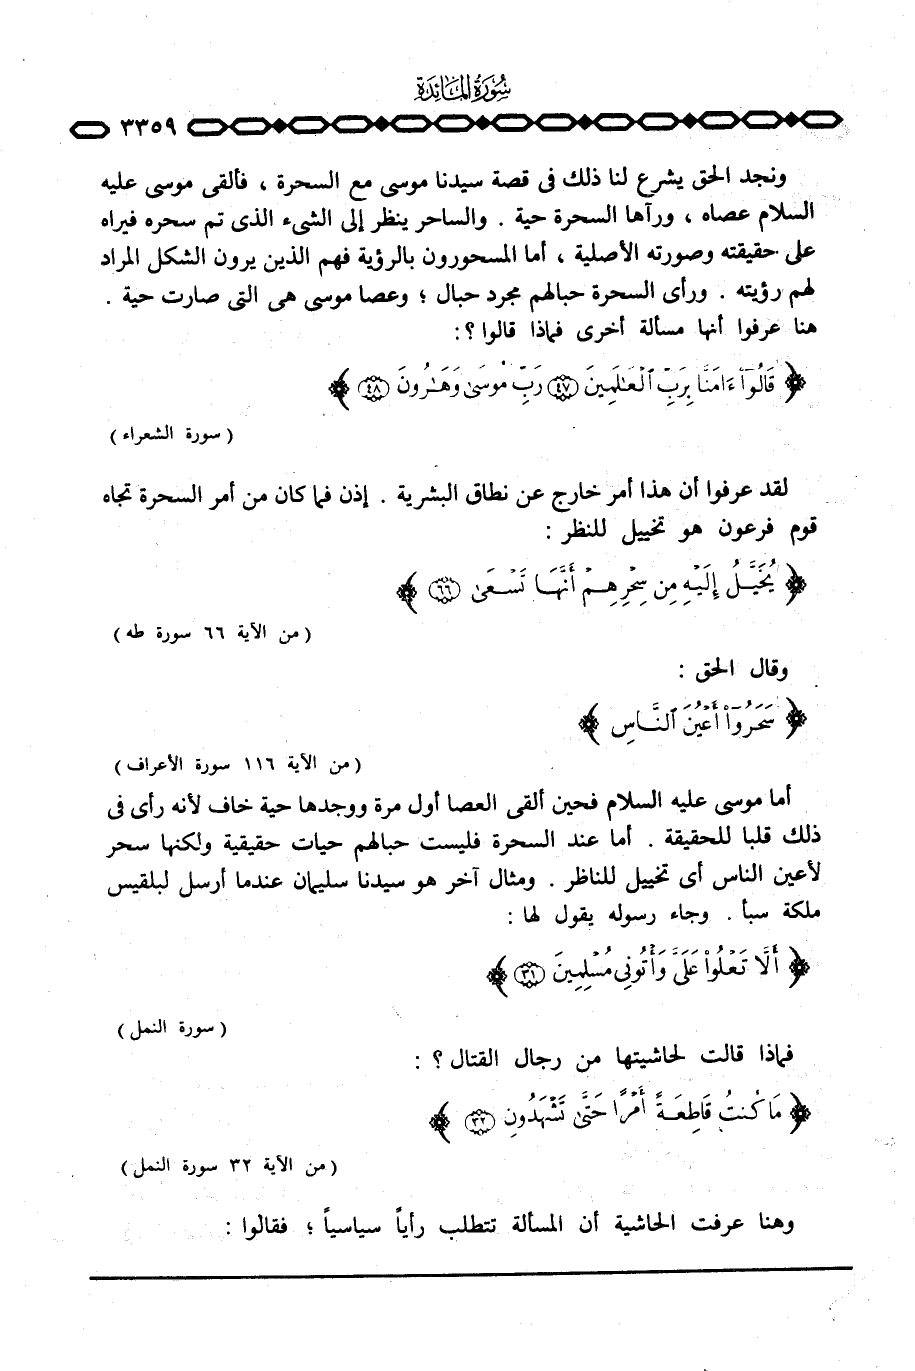 سُورَةُ المَائدَة
٣٣٥٩
ونجد الحق يشرع لنا ذلك فى قصة سيدنا موسى مع السحرة ، فألقى موسى عليه
السلام عصاه ، ورآها السحرة حية . والساحر ينظر إلى الشىء الذى تم سحره فيراه
على حقيقته وصورته الأصلية ، أما المسحورون بالرؤية فهم الذين يرون الشكل المراد
لهم رؤيته . ورأى السحرة حبالهم مجرد حبال ؛ وعصا موسى هى التى صارت حية .
هنا عرفوا أنها مسألة أخرى فماذا قالوا ؟ :
﴿ قَالُوٓا۟ ءَامَنَّا بِرَبِّ ٱلْعَٰلَمِينَ ٤٧ رَبِّ مُوسَىٰ وَهَٰرُونَ ٤٨ ﴾
( سورة الشعراء )
لقد عرفوا أن هذا أمر خارج عن نطاق البشرية . إذن فما كان من أمر السحرة تجاه
قوم فرعون هو تخييل للنظر :
﴿ يُخَيَّلُ إِلَيْهِ مِن سِحْرِهِمْ أَنَّهَا تَسْعَىٰ ٦٦ ﴾
( من الآية ٦٦ سورة طه )
وقال الحق :
﴿ سَحَرُوٓا۟ أَعْيُنَ ٱلنَّاسِ ﴾
( من الآية ١١٦ سورة الأعراف )
أما موسى عليه السلام فحين ألقى العصا أول مرة ووجدها حية خاف لأنه رأى فى
ذلك قلبا للحقيقة . أما عند السحرة فليست حبالهم حيات حقيقية ولكنها سحر
لأعين الناس أى تخييل للناظر . ومثال آخر هو سيدنا سليمان عندما أرسل لبلقيس
ملكة سبأ . وجاء رسوله يقول لها :
﴿ أَلَّا تَعْلُوا۟ عَلَىَّ وَأْتُونِى مُسْلِمِينَ ٣١ ﴾
( سورة النمل )
فماذا قالت لحاشيتها من رجال القتال ؟ :
﴿ مَا كُنتُ قَاطِعَةً أَمْرًا حَتَّىٰ تَشْهَدُونِ ٣٢ ﴾
( من الآية ٣٢ سورة النمل )
وهنا عرفت الحاشية أن المسألة تتطلب رأياً سياسياً ؛ فقالوا :